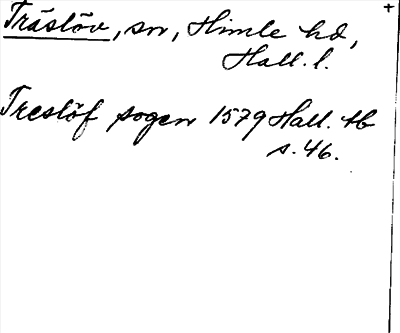 Träslöv, sn, Himle hd,
Hall. l.
Treslöf sogen 1579 Hall. tb
s. 46.